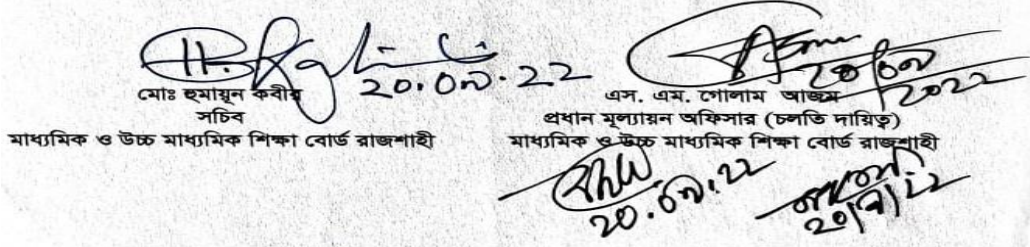 ২০.০৯.২২
মোঃ হুমায়ূন কবীর
সচিব
মাধ্যমিক ও উচ্চ মাধ্যমিক শিক্ষা বোর্ড রাজশাহী
২০/০৯/২০২২
এস. এম. গোলাম আজম
প্রধান মূল্যায়ন অফিসার (চলতি দায়িত্ব)
মাধ্যমিক ও উচ্চ মাধ্যমিক শিক্ষা বোর্ড রাজশাহী
২০.০৯.২২
২০/৯/২২